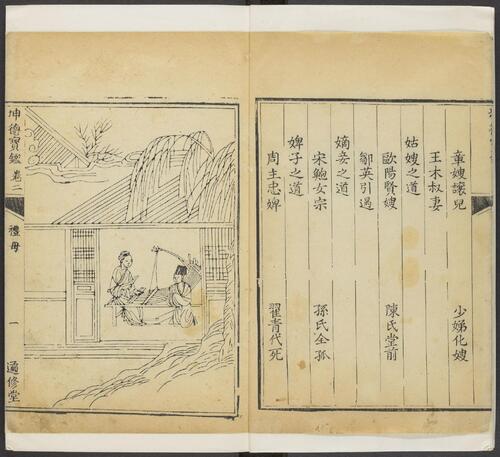 章嫂讓兒　少娣化嫂
王木叔妻
姑嫂之道
歐陽賢嫂　陳氏堂前
鄒英引過
嫡妾之道
宋鮑女宗　孫氏全孤
婢子之道
周主忠婢　翟青代死
坤德寶鑑　卷二　禮母　一　修堂